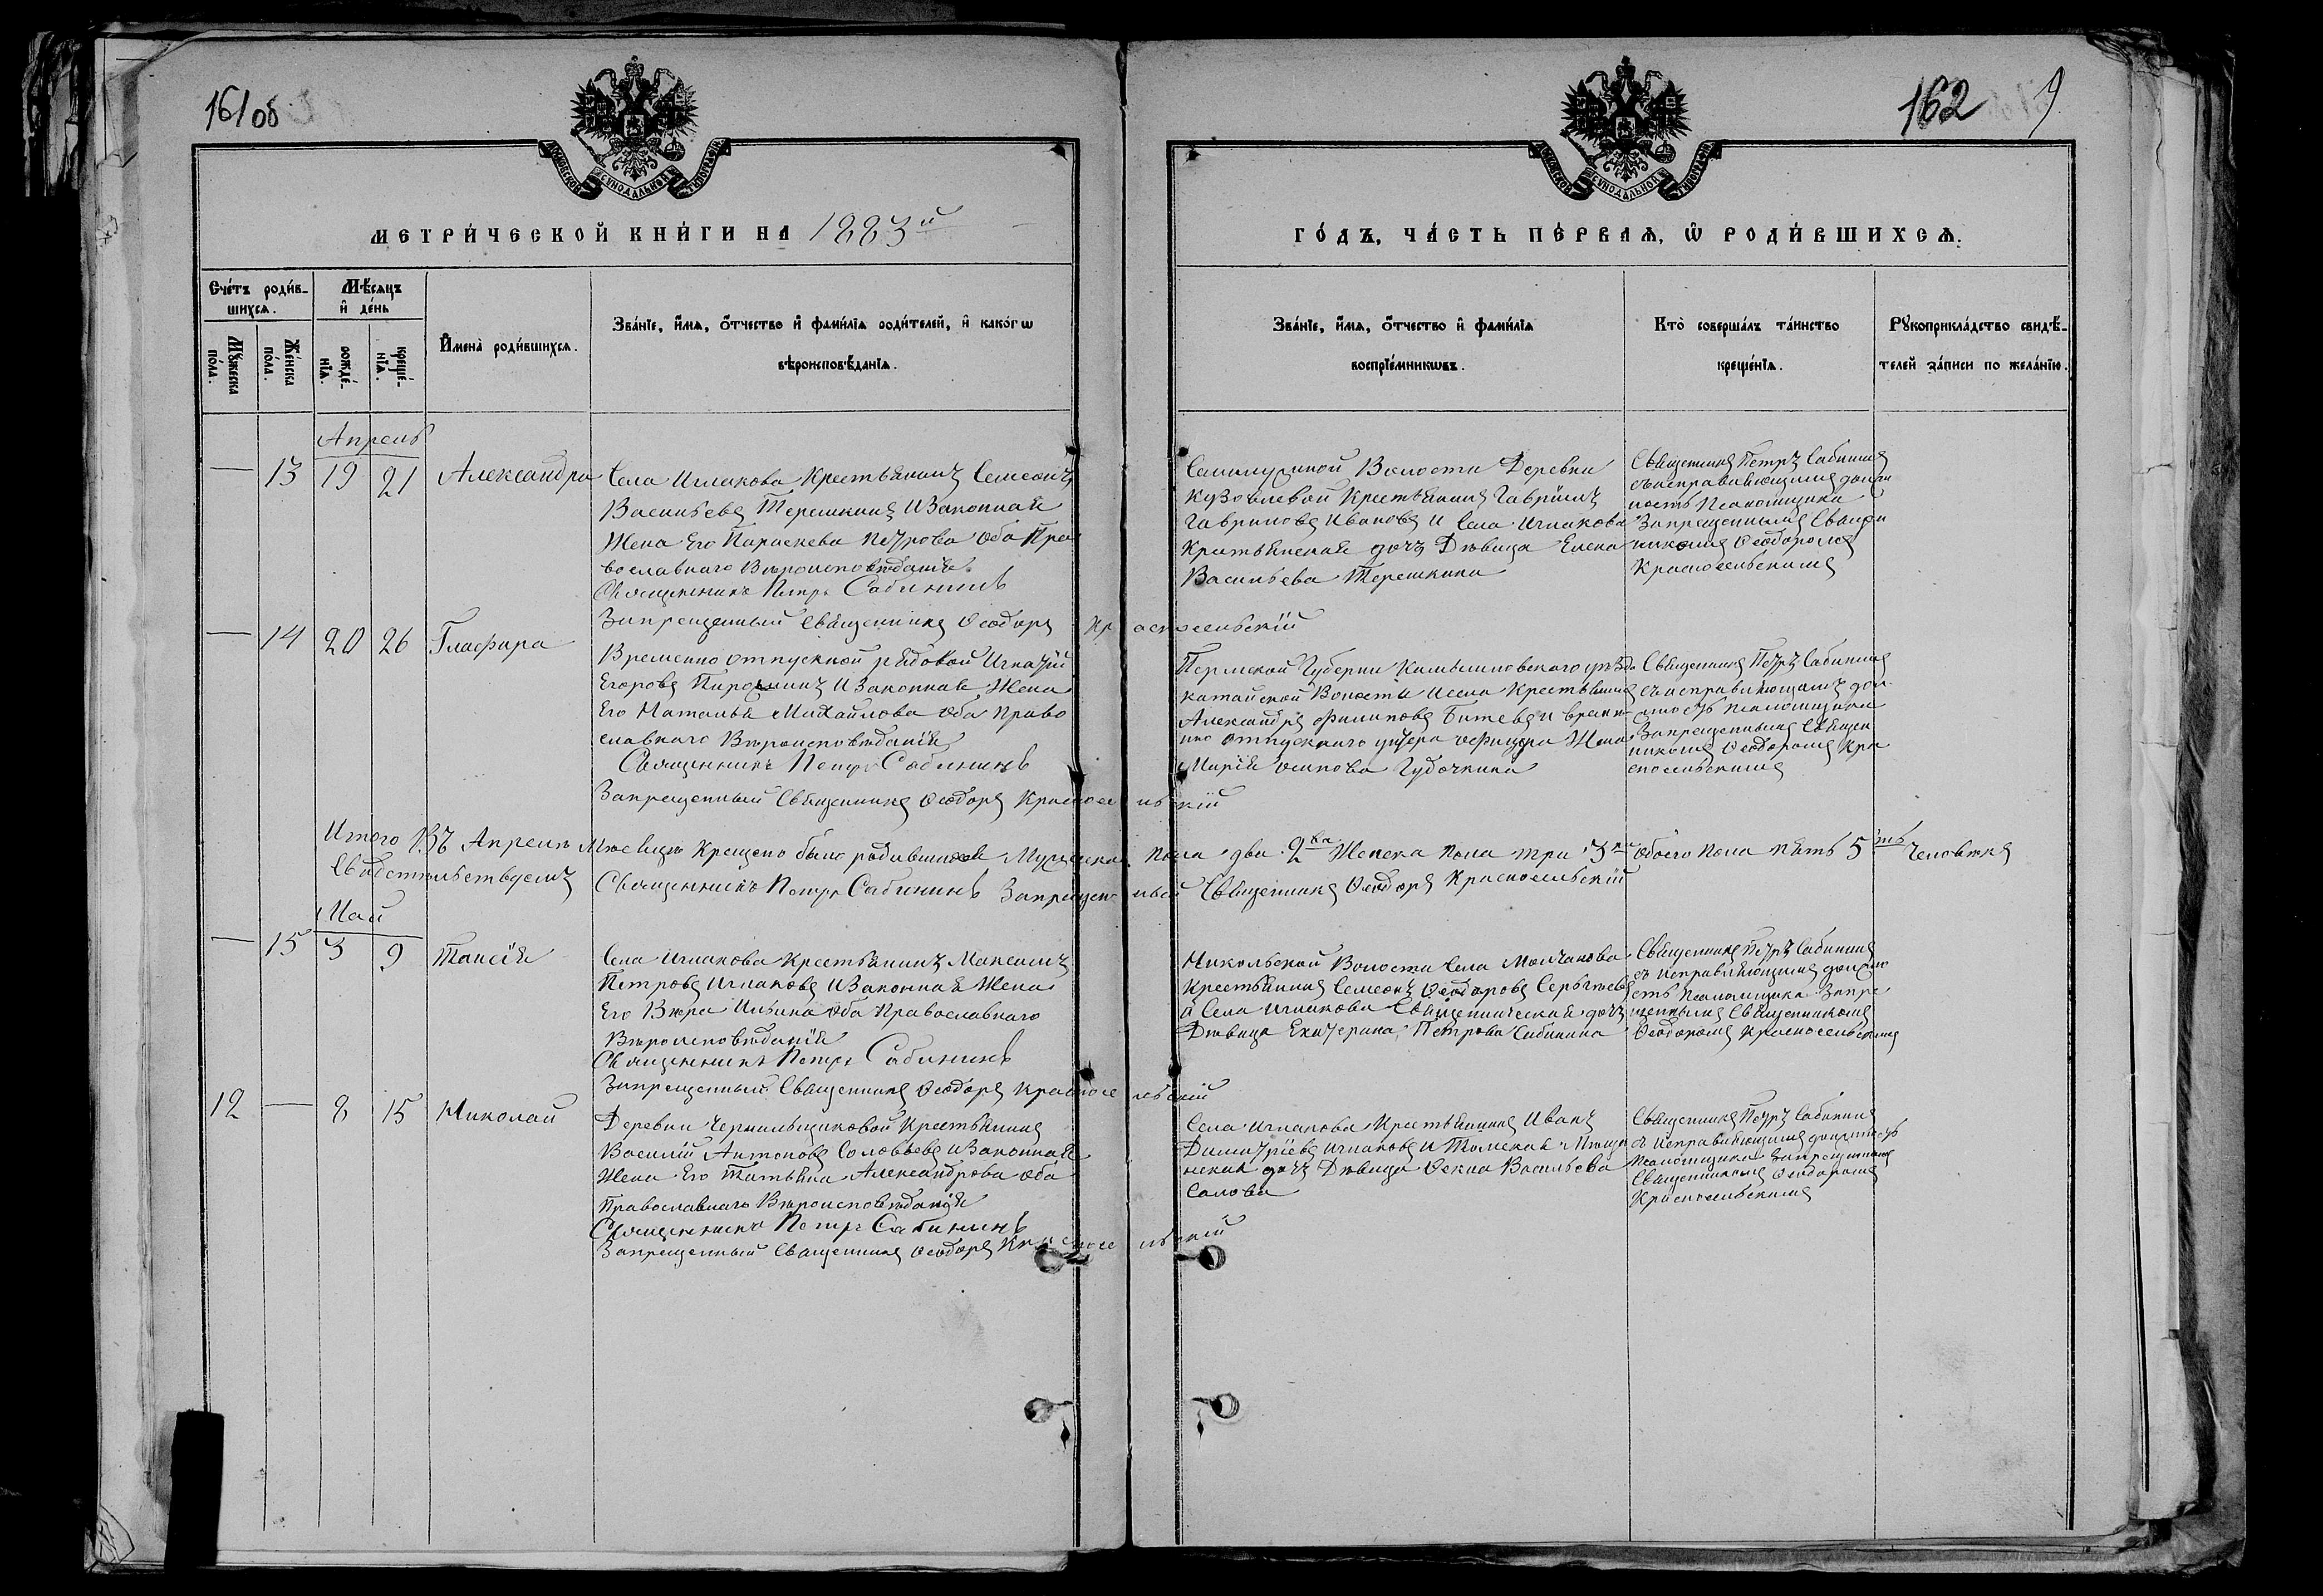 161 об
162
9
МОСКОВСКОЙ СУНОДАЛЬНОЙ ТИПОГРАФІИ
МОСКОВСКОЙ СУНОДАЛЬНОЙ ТИПОГРАФІИ
МЕТРИ́ЧЕСКОЙ КНИ́ГИ НА 1883й
ГО́ДЪ, ЧА́СТЬ ПЕ́РВАѦ, Ѿ РОДИ́ВШИХСѦ.
Сче́тъ роди́в-
шихсѧ.
Мѣ́сѧцъ
и҆ де́нь
Мꙋ́жеска
по́ла.
Же́нска
по́ла.
рожде́-
нїѧ.
креще́-
нїѧ.
И҆мена̀ роди́вшихсѧ.
Зва́нїе, и҆́мѧ, ѻ҆́тчество и҆ фами́лїѧ роди́телей, и҆ како́гѡ
вѣроисповѣ́данїѧ.
Зва́нїе, и҆́мѧ, ѻ҆́тчество и҆ фами́лїѧ
воспрїе́мникѡвъ.
Кто̀ соверша́лъ та́инство
креще́нїѧ.
Рꙋкоприкла́дство свидѣ́-
телей за́писи по жела́нїю.
Апрель
— 13 19 21 Александра
Села Иглакова Крестьянинъ Семеонъ
Васильевъ Терешкинъ и Законная
Жена Его Параскева Петрова оба Пра
вославнаго Вѣроисповѣданія
Священникъ Петръ Сабининъ
Запрещенный Священникъ Ѳеодоръ Красносельскій
Волости Деревни
Крестьянинъ Гавріилъ
Гавриловъ Ивановъ и Села Иглакова
Крестьянская дочь Дѣвица Елена
Васильева Терешкина
Священникъ Петръ Сабининъ
съ исправляющимъ долж
ность Псаломщика
Запрещеннымъ Священ
никомъ Ѳеодоромъ
Красносельскимъ
— 14 20 26 Глафира
Временно отпускной рядовой Игнатій
Егоровъ и Законная Жена
Его Наталья Михайлова оба Право
славнаго Вѣроисповѣданія
Священникъ Петръ Сабининъ
Запрещенный Священникъ Ѳеодоръ Красносельскій
Пермской Губерніи Камышловскаго уѣзда
Катайской Волости и села Крестьянинъ
Александръ Филиповъ и врем
но отпускнаго унтеръ офицера Жена
Марія Осипова Губочкина
Священникъ Петръ Сабининъ
съ исправляющимъ дол
жность Псаломщика
Запрещеннымъ Священ
никомъ Ѳеодоромъ Кра
сносельскимъ
Итого въ Апрелѣ Мѣсяцѣ Крещено было родившихся Мужеска пола два 2ва Женска пола три 3 обоего пола пять 5ть Человѣкъ
Свидѣтельствуемъ Священникъ Петръ Сабининъ Запрещенный Священникъ Ѳеодоръ Красносельскій
Май
— 15 3 9 Таисія
Села Иглакова Крестьянинъ Максимъ
Петровъ Иглаковъ и Законная Жена
Его Вѣра Ильина оба Православнаго
Вѣроисповѣданія
Священникъ Петръ Сабининъ
Запрещенный Священникъ Ѳеодоръ Красносельскій
Никольской Волости Села Молчанова
Крестьянинъ Семеонъ Ѳеодоровъ Сергѣевъ
и Села Иглакова Священническая дочь
Дѣвица Екатерина Петрова Сабинина
Священникъ Петръ Сабининъ
съ исправляющимъ должно
сть Псаломщика Запре
щеннымъ Священникомъ
Ѳеодоромъ Красносельскимъ
12 — 8 15 Николай
Деревни Чернильщиковой Крестьянинъ
Василій Антоновъ Соловьевъ и Законная
Жена Его Татьяна Александрова оба
Православнаго Вѣроисповѣданія
Священникъ Петръ Сабининъ
Запрещенный Священникъ Ѳеодоръ Красносельскій
Села Иглакова Крестьянинъ Иванъ
Димитріевъ Иглаковъ и Томская Мѣща
нская дочь Дѣвица Ѳекла Васильева
Священникъ Петръ Сабининъ
съ исправляющимъ должность
Псаломщика Запрещеннымъ
Священникомъ Ѳеодоромъ
Красносельскимъ